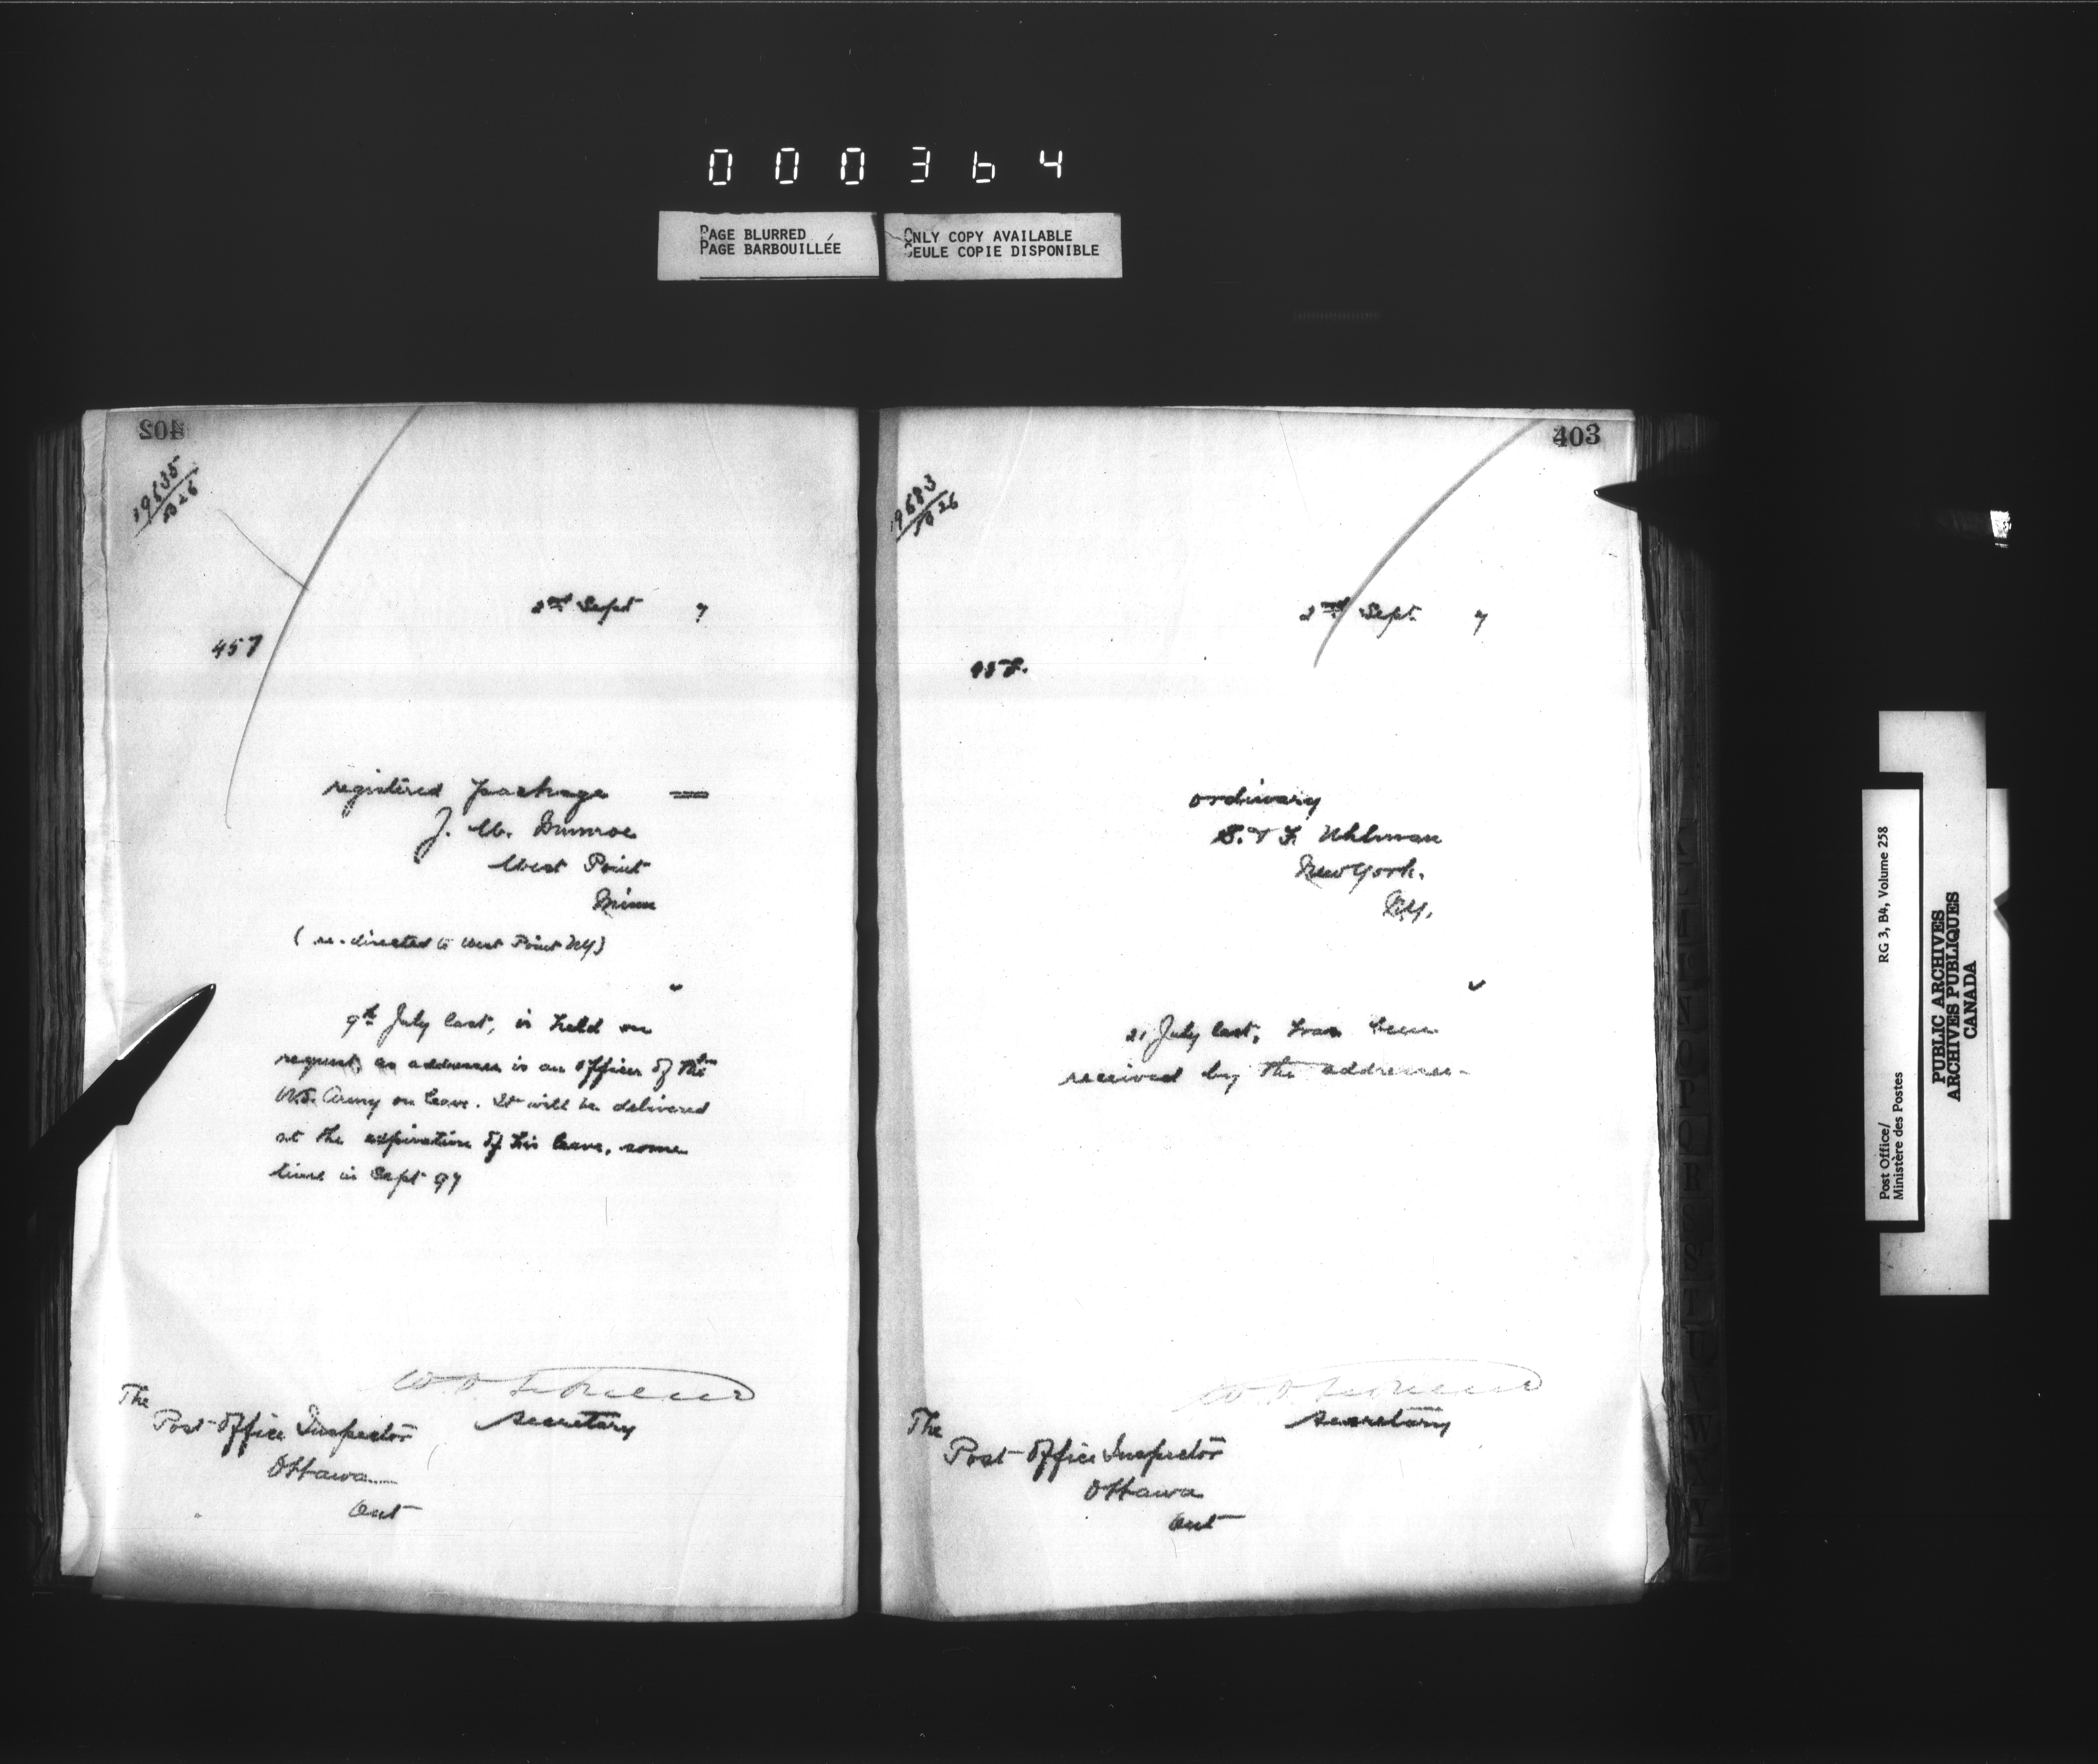 000364
PAGE BLURRED
PAGE BARBOUILLÉE
ONLY COPY AVAILABLE
SEULE COPIE DISPONIBLE
402
19635
B26
2nd Sept 7
457
registered package =
J. M. Munroe
West Point
Minn
(re-directed to West Point NY)
"
9th July last, is held on
request, as addressee is an officer of the
U.S. Army on leave. It will be delivered
at the expiration of his leave, some
time in Sept 97
Secretary
The
Post Office Inspector
Ottawa
Ont
403
19683
B26
2nd Sept. 7
458.
ordinary
S. & F. Uhlman
New York.
N.Y.
"
21 July last, has been
received by the addressee.
Secretary
The
Post Office Inspector
Ottawa
Ont
Post Office/
Ministère des Postes
RG 3, B4, Volume 258
PUBLIC ARCHIVES
ARCHIVES PUBLIQUES
CANADA